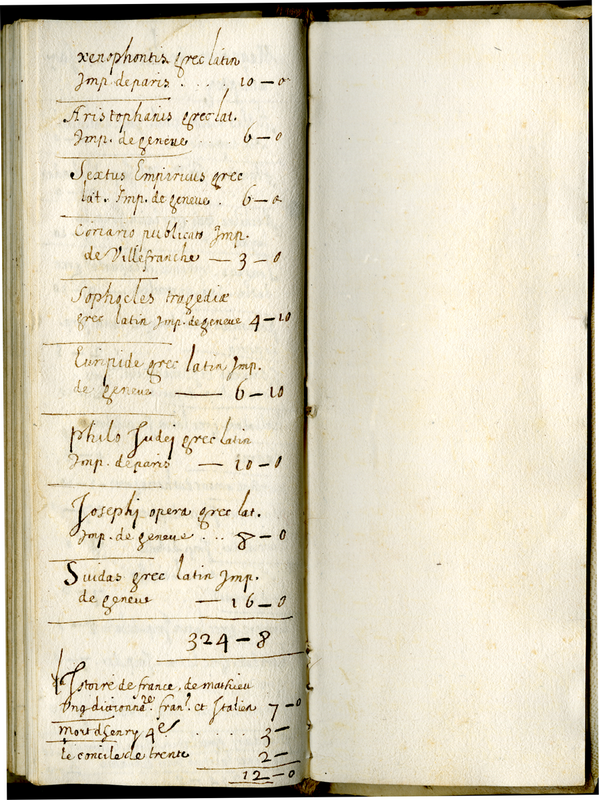 xenophontis grec latin
Imp. de paris . . . . 10 — 0
Aristophanis grec lat.
Imp. de geneue . . . . 6 — 0
Sextus Empiricus grec
lat. Imp. de geneue . 6 — 0
publicato Imp.
de Villefranche — 3 — 0
Sophocles tragediæ
grec latin Imp. de geneue 4 — 10
Euripide grec latin Imp.
de geneue — 6 — 10
philo Judej grec latin
Imp. de paris — 10 — 0
Josephj opera grec lat.
Imp. de geneue . . . 8 — 0
Suidas grec latin Imp.
de geneue — 16 — 0
324 — 8
Istoire de france, de mathieu
Vng dictionnre. franc. et Italien 7 — 0
Mort d henry 4e . . . . . 3 —
le concile de trente 2 —
12 — 0